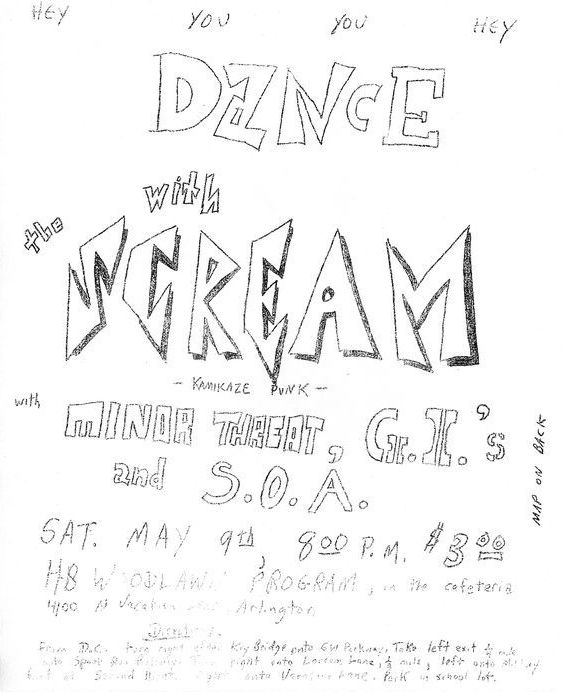 HEY YOU YOU HEY
DaNcE
with
the
SCREAM
- KAMIKAZE PUNK -
with
MINOR THREAT, G.I.'s
and S.O.A.
MAP ON BACK
SAT. MAY 9th, 8:00 P.M. $3.00
H8 WOODLAWN PROGRAM, in the cafeteria
4100 N Vacation Lane, Arlington
Directions:
From D.C. turn right after Key Bridge onto GW Parkway. Take left exit ½ mile
onto Spout Run Parkway. Turn right onto Lorcom Lane, ½ mile, left onto Military
at Second light right onto Vacation Lane. Park in school lot.